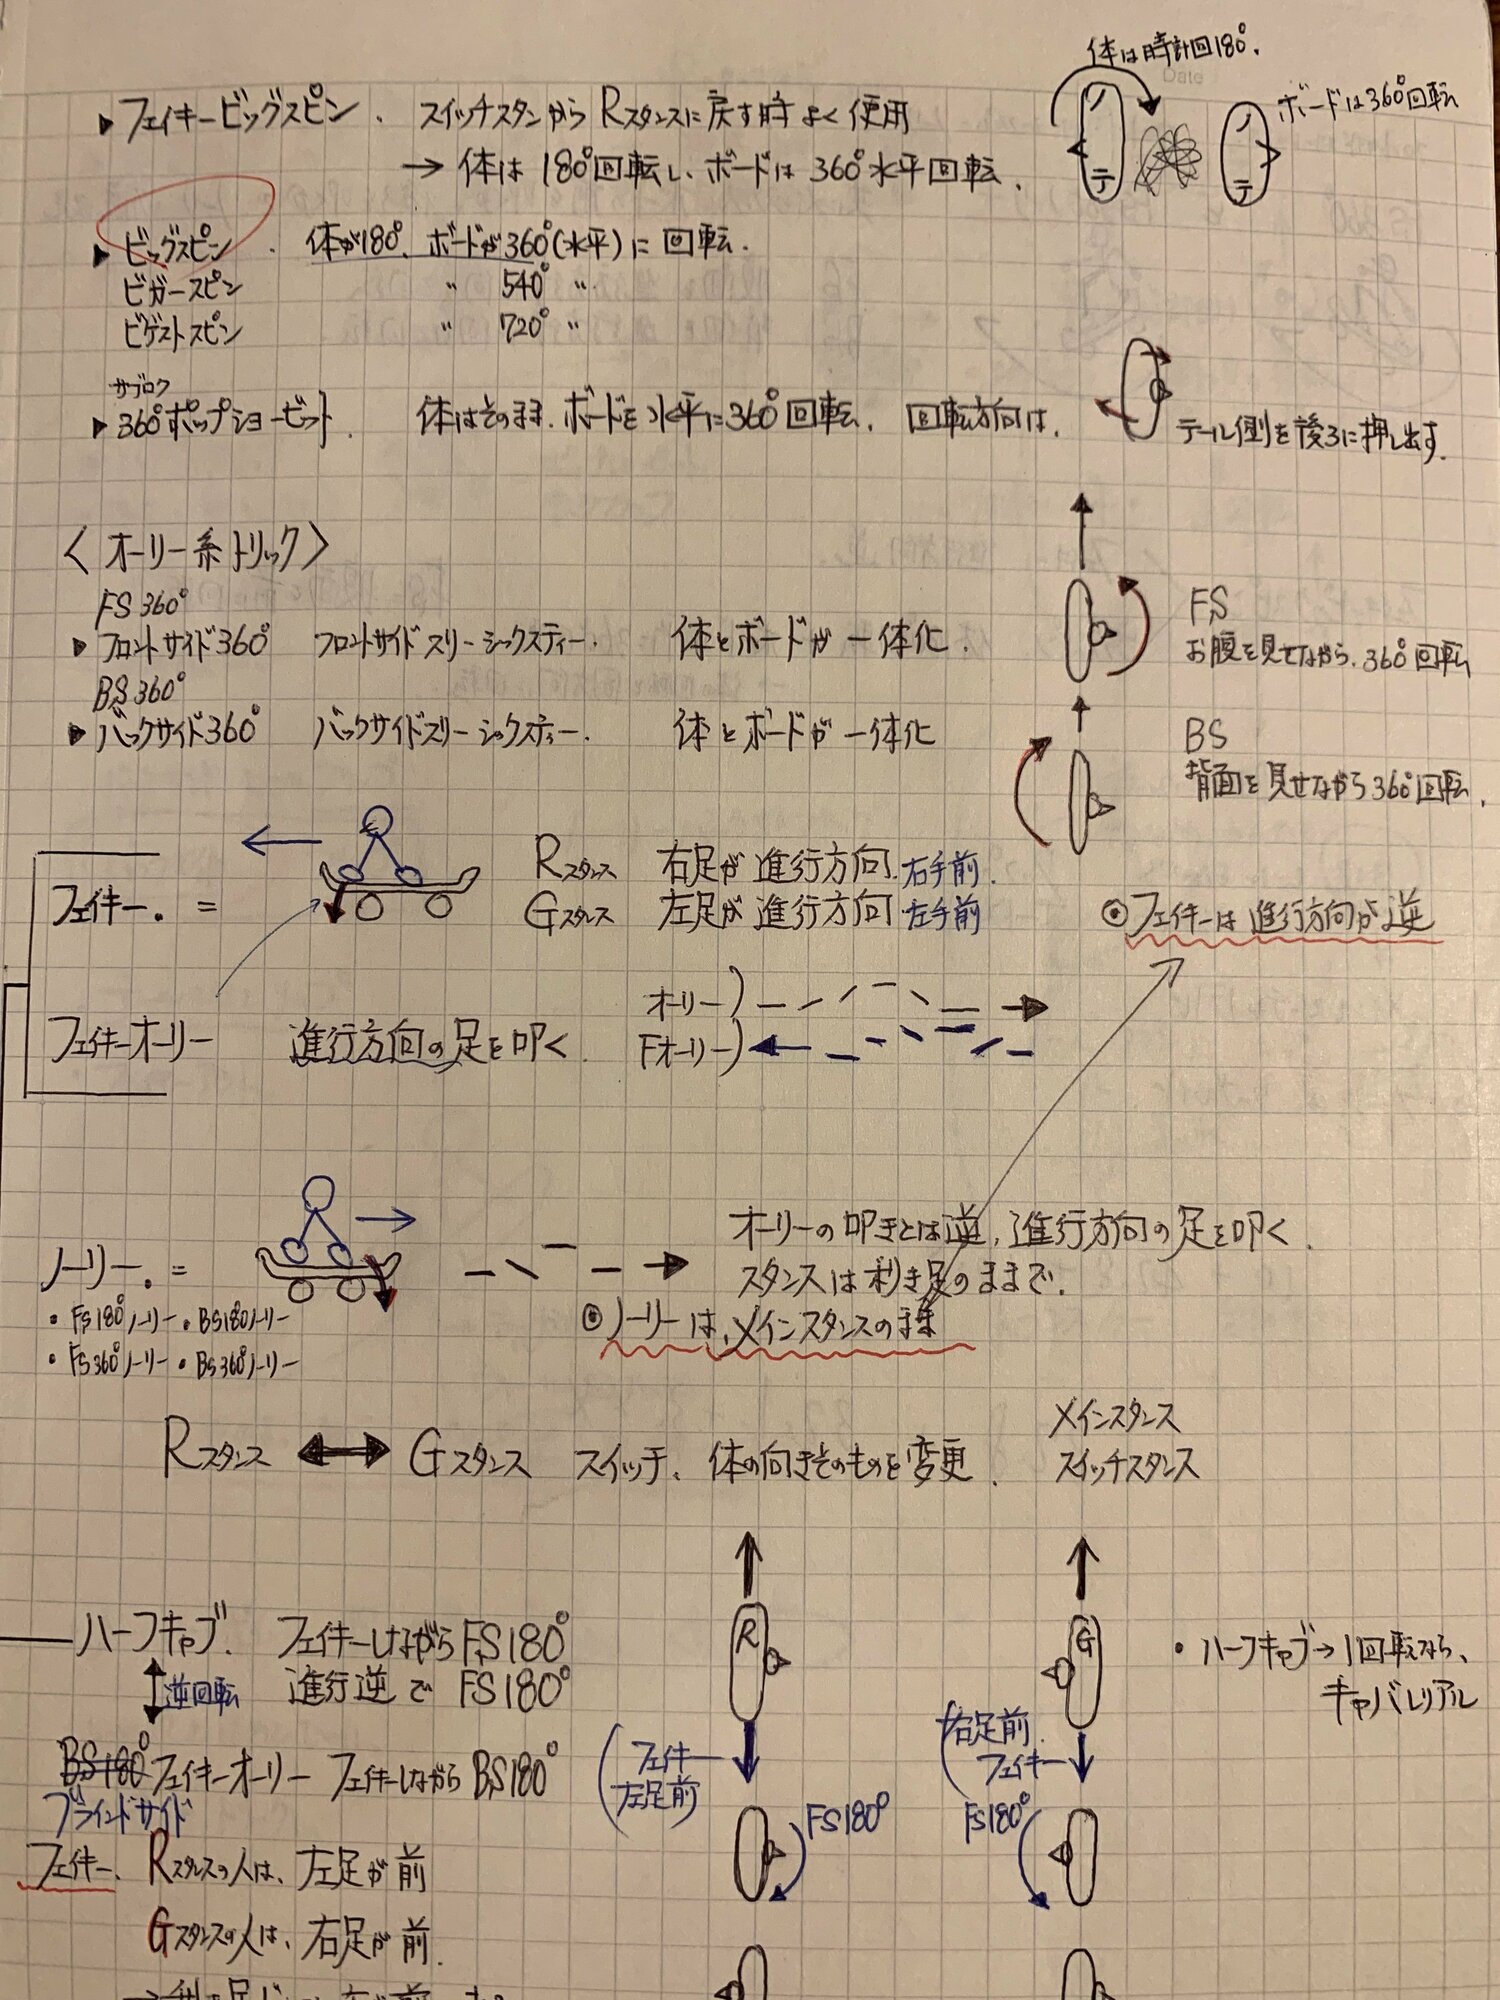 体は時計回180°.
Date
▶フェイキービッグスピン. スイッチスタンからRスタンスに戻す時よく使用
ボードは360°回転
→ 体は180°回転し、ボードは360°水平回転.
ノ テ ノ テ
▶ビッグスピン. 体が180°、ボードが360°(水平)に回転.
ビガースピン 〃 540° 〃
ビゲストスピン 〃 720° 〃
サブロク
▶360°ポップショービット. 体はそのまま.ボードを水平に360°回転. 回転方向は.
テール側を後ろに押し出す.
〈オーリー系トリック〉
FS360°
▶フロントサイド360° フロントサイドスリーシックスティー. 体とボードが一体化.
FS
お腹を見せながら、360°回転
BS360°
▶バックサイド360° バックサイドスリーシックスティー. 体とボードが一体化
BS
背面を見せながら360°回転.
Rスタンス 右足が進行方向.右手前.
フェイキー. = Gスタンス 左足が進行方向 左手前
◎フェイキーは進行方向が逆
オーリー)
フェイキーオーリー 進行方向の足を叩く. Fオーリー)
オーリーの叩きとは逆,進行方向の足を叩く.
ノーリー. = スタンスは利き足のままで.
・FS180°ノーリー・BS180ノーリー ◎ノーリーは、メインスタンスのまま
・FS360°ノーリー・BS360°ノーリー
メインスタンス
Rスタンス ⟷ Gスタンス スイッチ、体の向きそのものを変更. スイッチスタンス
R G
ハーフキャブ. フェイキーしながらFS180°
・ハーフキャブ→1回転なら、
キャバレリアル
逆回転 進行逆でFS180°
右足前.
フェイキー
フェイキー
左足前
BS180°フェイキーオーリー フェイキーしながらBS180°
ブラインドサイド
FS180° FS180°
フェイキー、Rスタンスの人は、左足が前
Gスタンスの人は、右足が前.